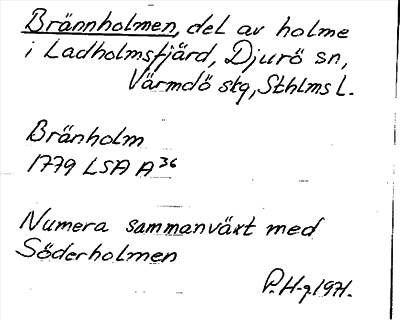 Brännholmen, del av holme
i Ladholmsfjärd, Djurö sn,
Värmdö skg, Sthlms L.
Bränholm
1779 LSA A 36
Numera sammanväxt med
Söderholmen
P. H-g. 1971.